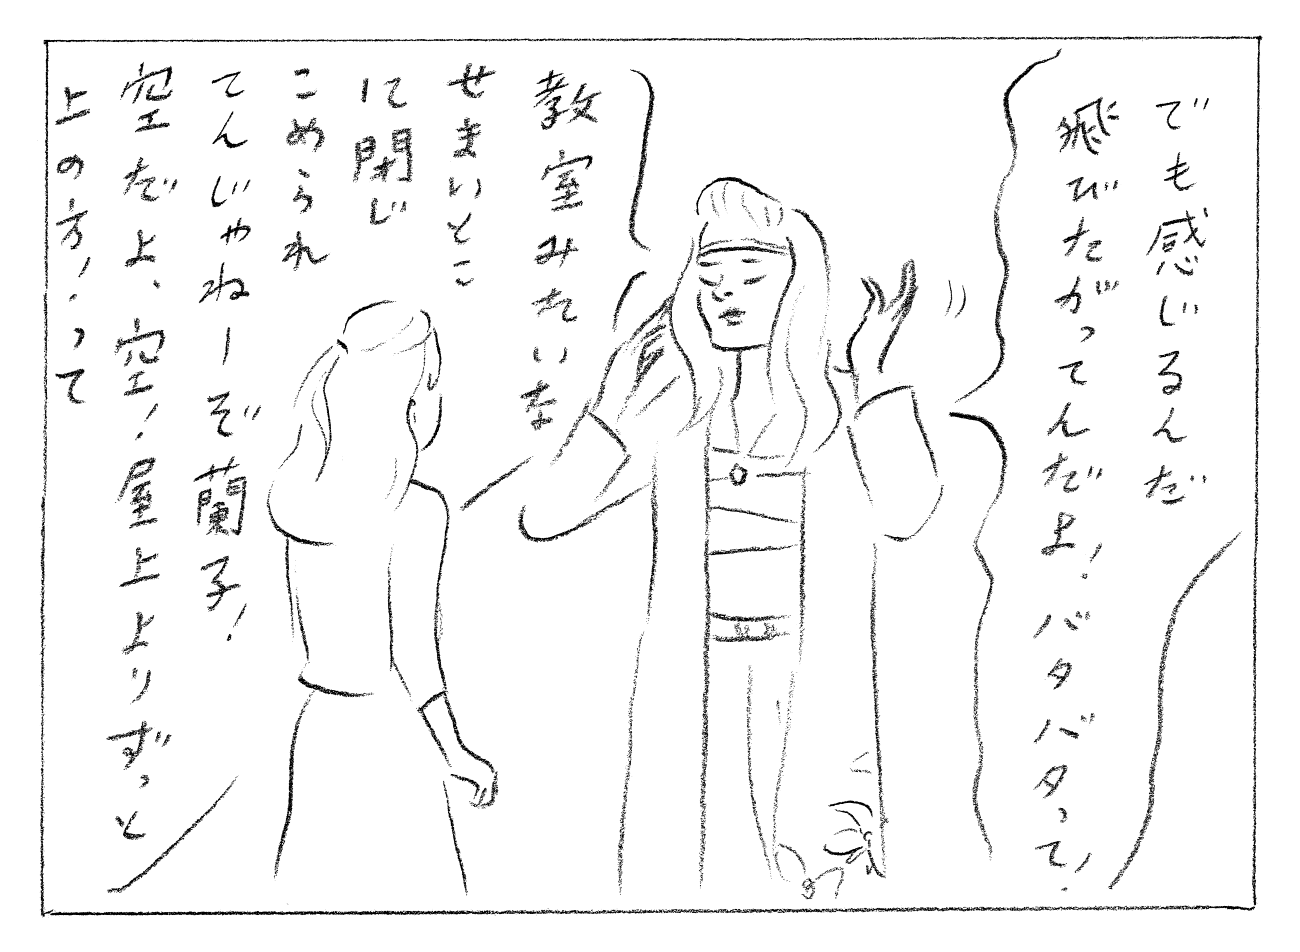 でも感じるんだ
飛びたがってんだよ！バタバタって！
教室みたいな
せまいとこ
に閉じ
こめられ
てんじゃねーぞ蘭子！
空だよ、空！屋上よりずっと
上の方！って